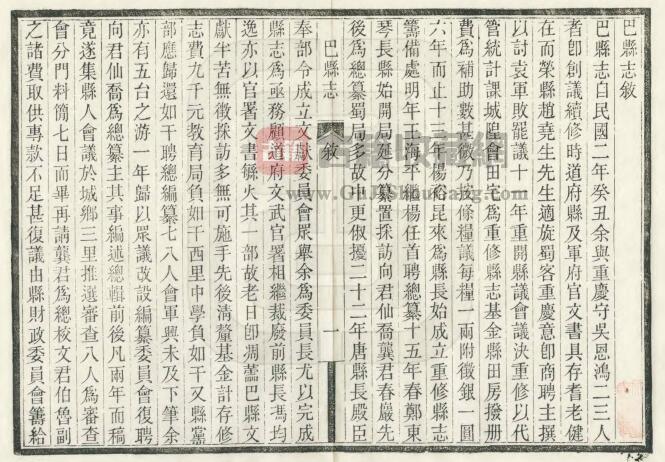 巴縣志敘
巴縣志自民國二年癸丑余與重慶守吳恩鴻二三人
者卽創議續修時道府縣及軍府官文書具存耆老健
在而榮縣趙堯生先生適旋蜀客重慶意卽商聘主撰
以討袁軍敗罷議十一年重開縣議會議決重修以代
管統計課城隍會田宅爲重修縣志基金縣田房撥册
費爲補助數甚微乃按條糧議每糧一兩附徵銀一圓
六年而止十三年楊裕昆來爲縣長始成立重修縣志
籌備處明年王海平繼楊任首聘總纂十五年春鄭東
琴長縣始開局延分纂置採訪向君仙喬龔君春巖先
後爲總纂蜀局多故中更俶擾二十二年唐縣長殿臣
巴縣志 敘 一
奉部令成立文獻委員會眾舉余爲委員長尤以完成
縣志爲亟務顧道府文武官署相繼裁廢前縣長馮均
逸亦以官署文書鬻火其一部故老日卽凋蘦巴縣文
獻半苦無徵採訪多無可施手先後淸釐基金計存修
志費九千元敎育局負如干西里中學負如干又縣黨
部應歸還如干聘總編纂七八人會軍興未及下筆余
亦有五台之游一年歸以眾議改設編纂委員會復聘
向君仙喬爲總纂主其事編述總輯前後凡兩年而稿
竟遂集縣人會議於城鄉三里推選審查八人爲審查
會分門料簡七日而畢再請龔君爲總校文君伯魯副
之諸費取供專款不足甚復議由縣財政委員會籌給
古籍收藏網
www.GuJiShouCang.com